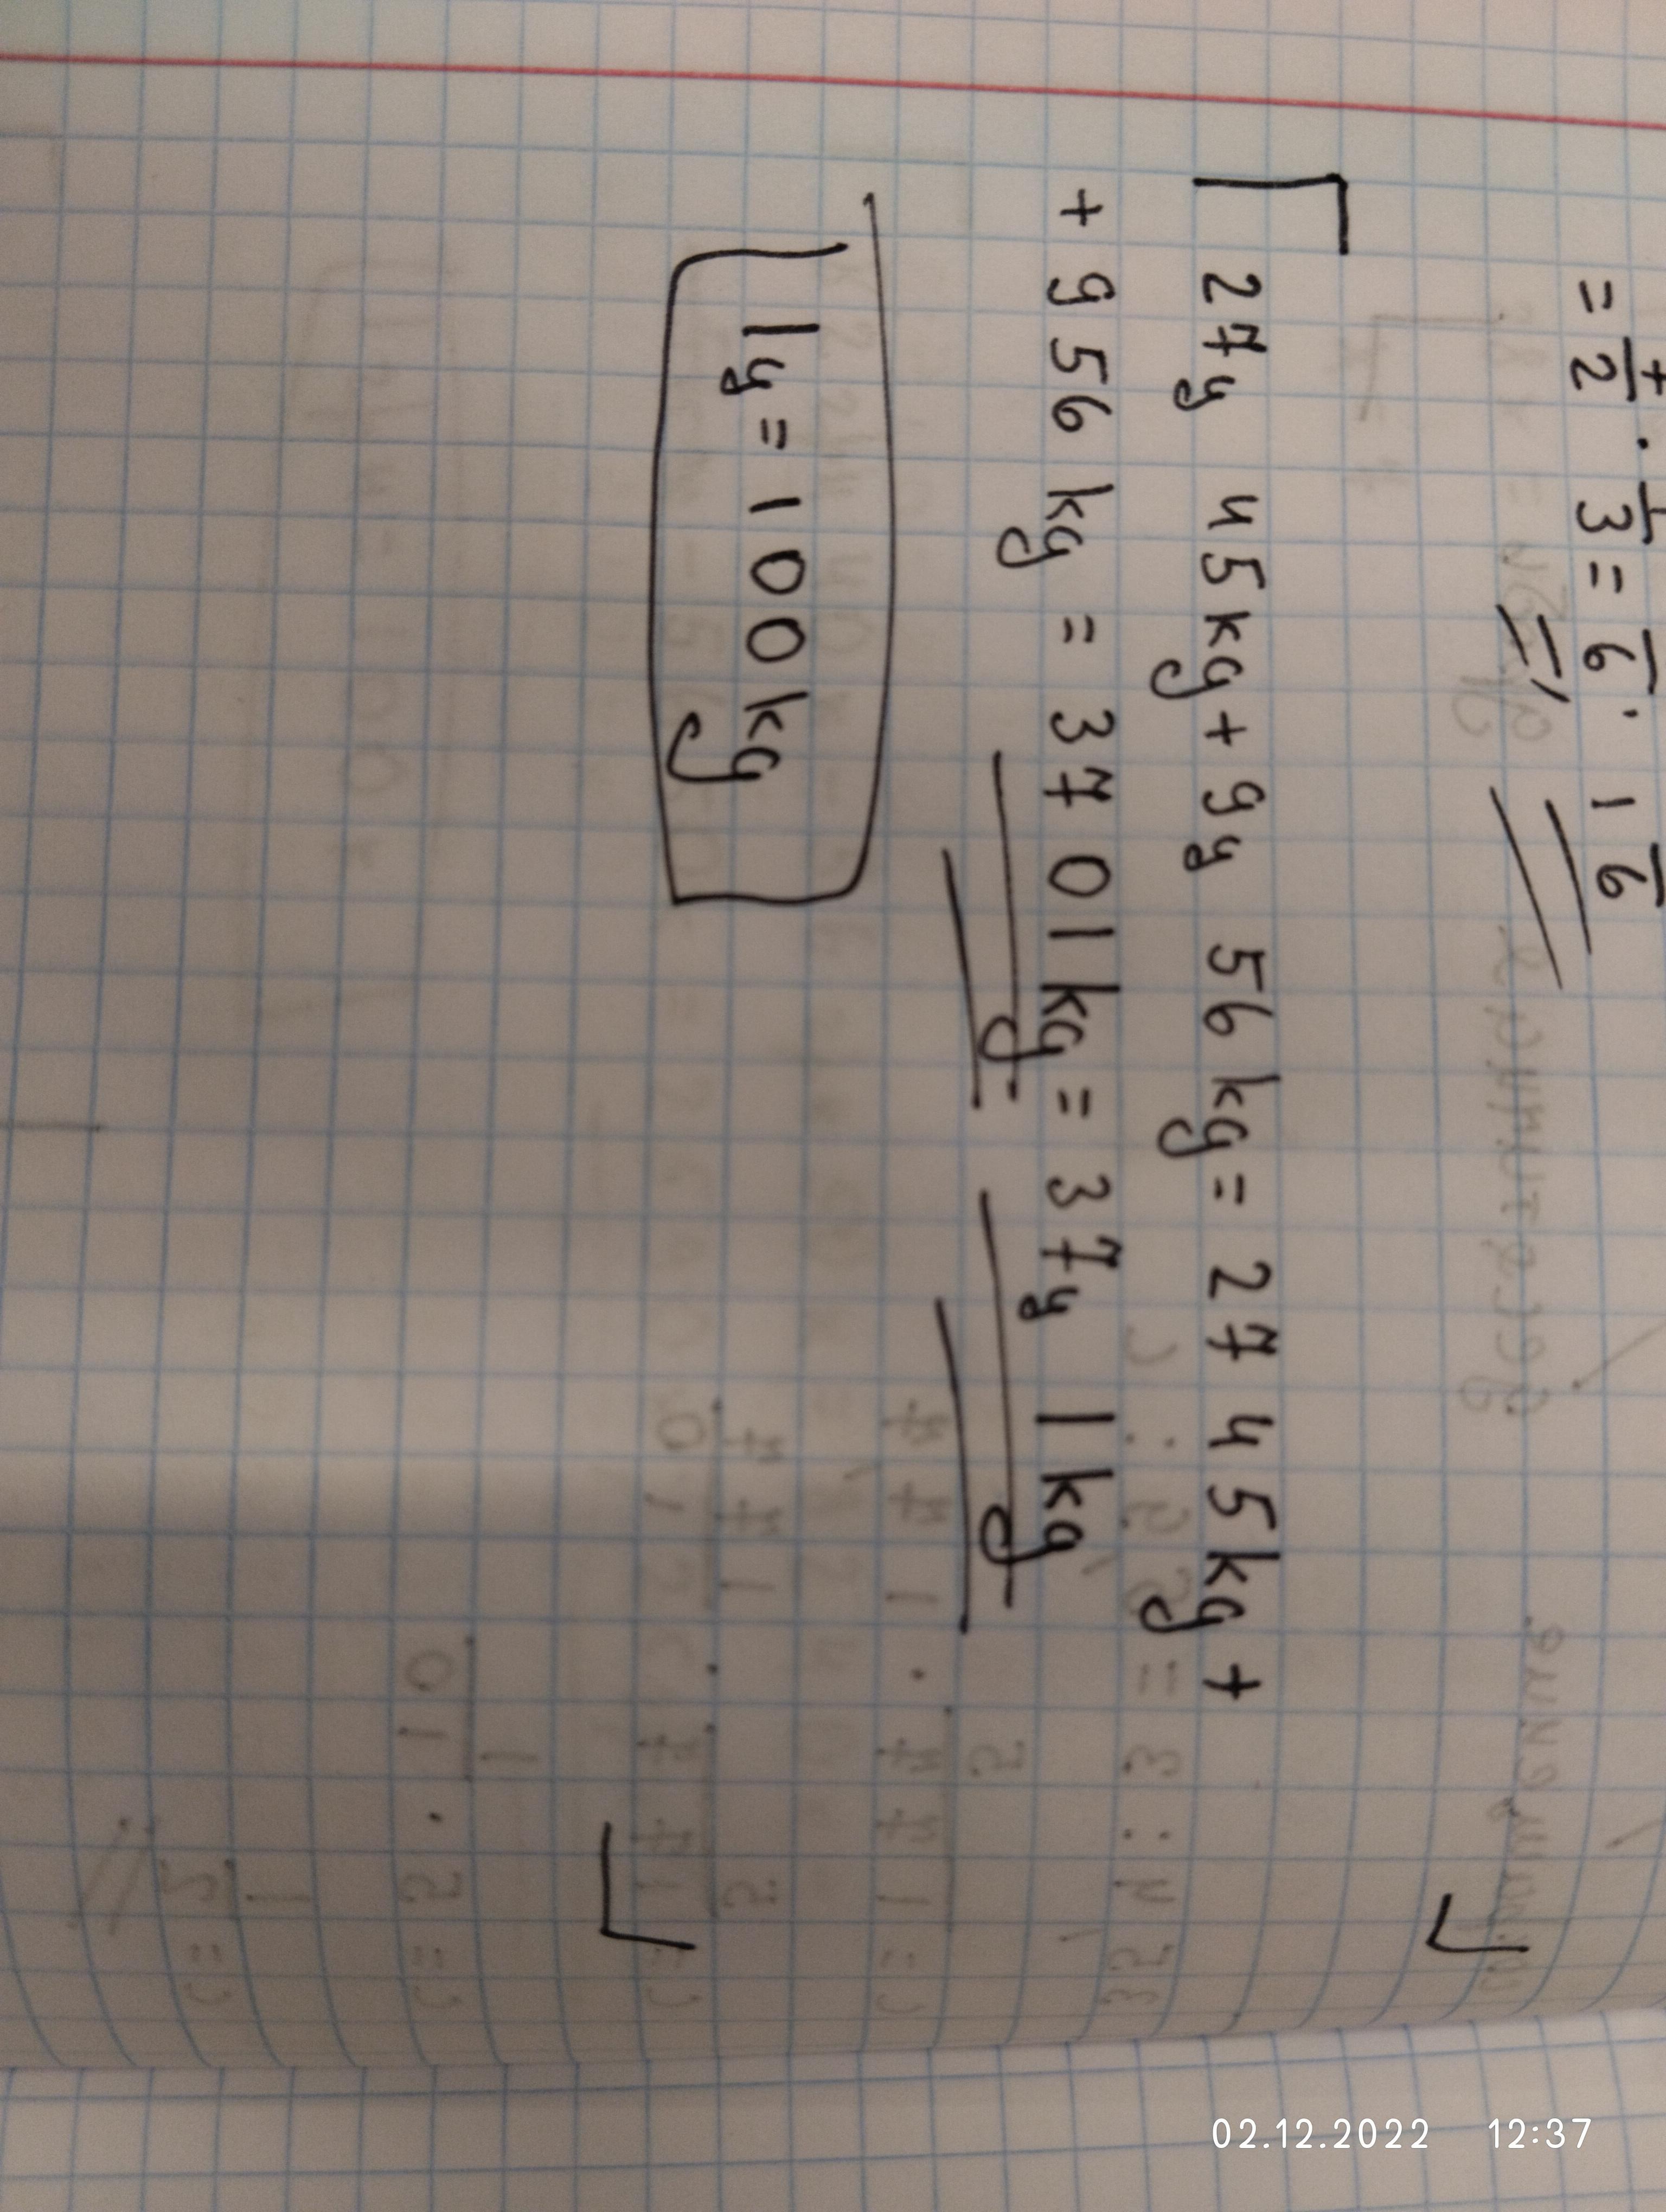 = 7/2 · 1/3 = 7/6; 1 1/6
27y 45kg + 9y 56kg = 2745kg +
+ 956kg = 3701kg = 37y 1kg
1y = 100kg
02.12.2022 12:37